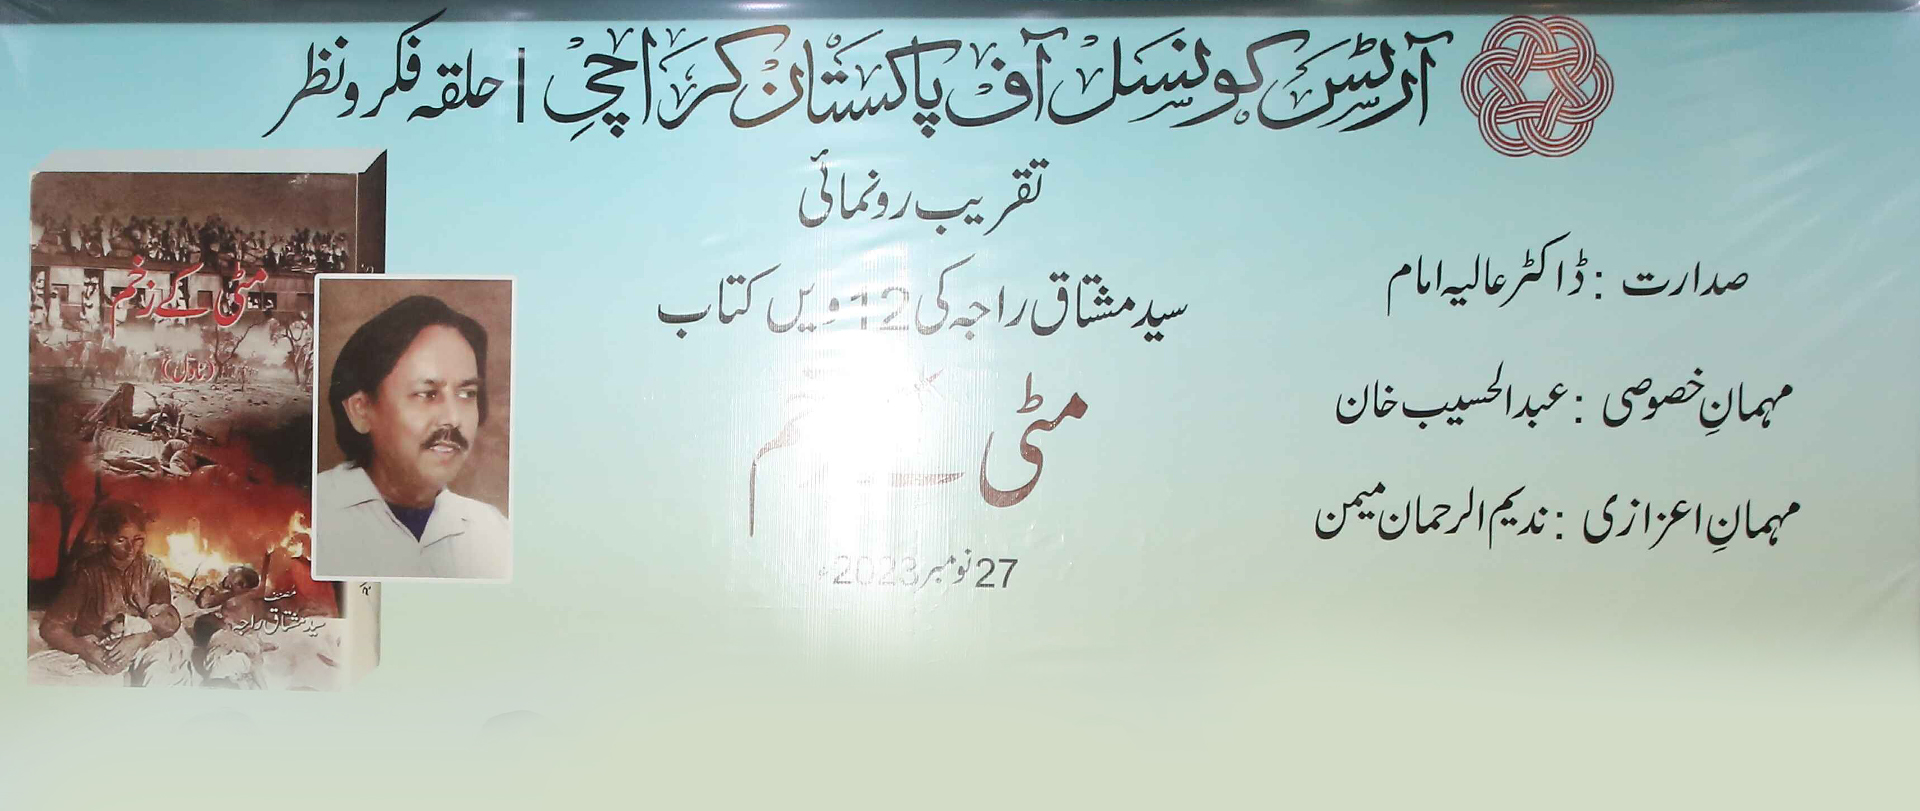 آرٹس کونسل آف پاکستان کراچی | حلقہ فکر و نظر
تقریب رونمائی
سید مشتاق راجہ کی 12 ویں کتاب
مٹی کے زخم
27 نومبر 2023ء
صدارت : ڈاکٹر عالیہ امام
مہمانِ خصوصی : عبدالحسیب خان
مہمانِ اعزازی : ندیم الرحمان میمن
مٹی کے زخم
(ناول)
مصنف
سید مشتاق راجہ